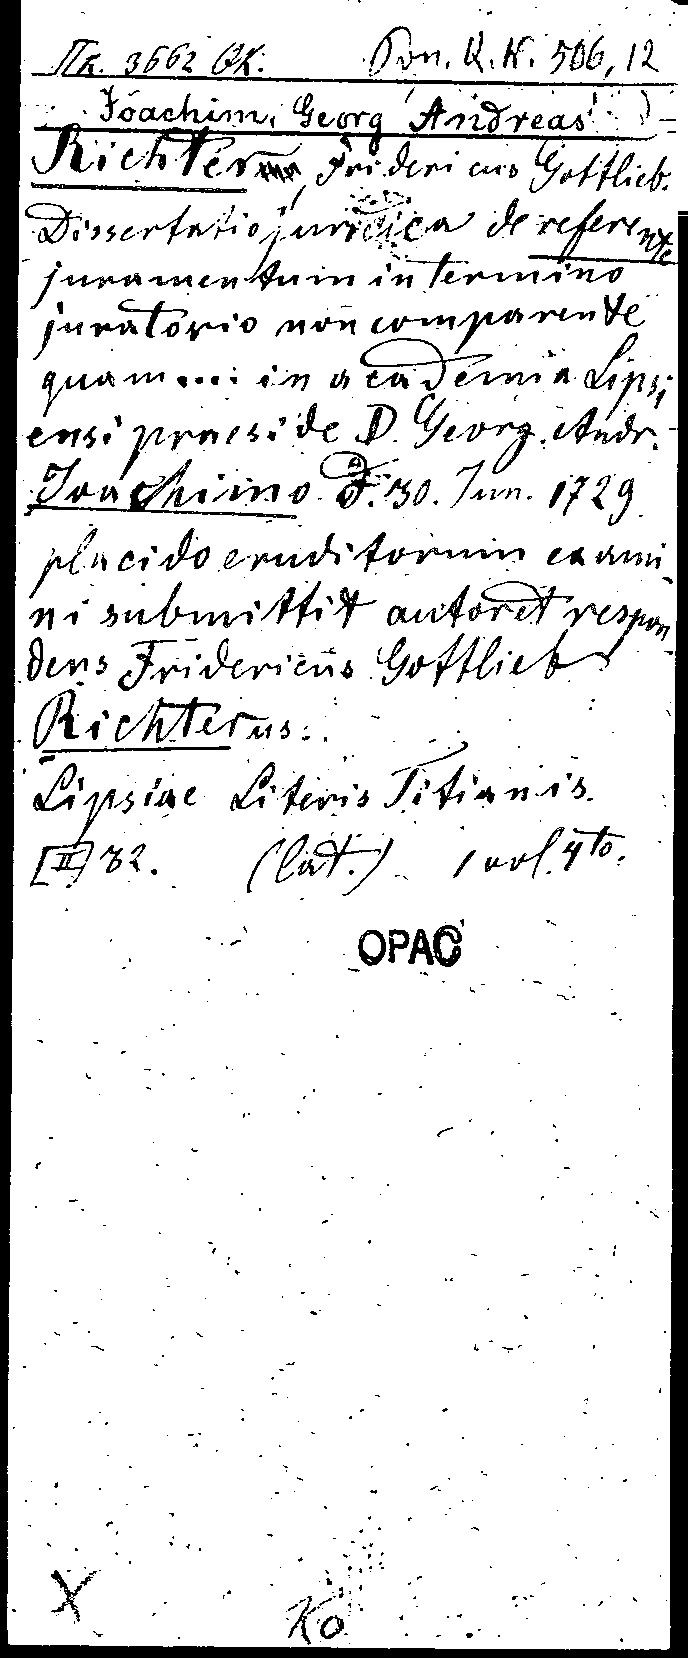 Пк. 3662 QK. Pon. Q. K. 506, 12
Joachim, Georg Andreas
Richter, Fridericus Gottlieb.
Dissertatio juridica de referente
juramentum in termino
juratorio non comparente
quam.... in academia Lipsi
ensi praeside D. Georg. Andr.
Joachimo d. 30. Jun. 1729
placido eruditorum exami-
ni submittit autor et respon-
dens Fridericus Gottlieb
Richterus.
Lipsiae Literis Titianis.
[II] 32. (lat.) 1 vol. 4to.
OPAC
X Ko